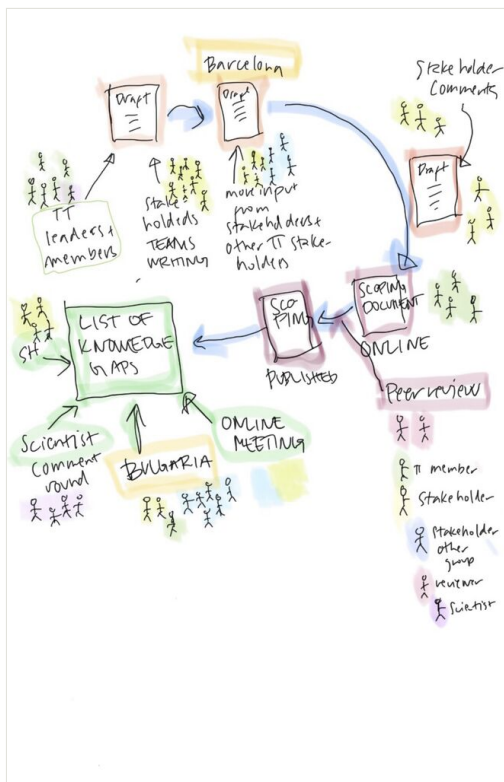 Barcelona
Stakeholder
Comments
Draft
Draft
Draft
TT
leaders +
members
Stake
holders
TEAMS
WRITING
more input
from
stakeholders +
other TT stake-
holders
SCOPING
DOCUMENT
ONLINE
SCO
PING
PUBLISHED
Peer review
LIST OF
KNOWLEDGE
GAPS
SH
Scientist
Comment
round
BULGARIA
ONLINE
MEETING
TT member
Stakeholder
Stakeholder
other
group
reviewer
Scientist